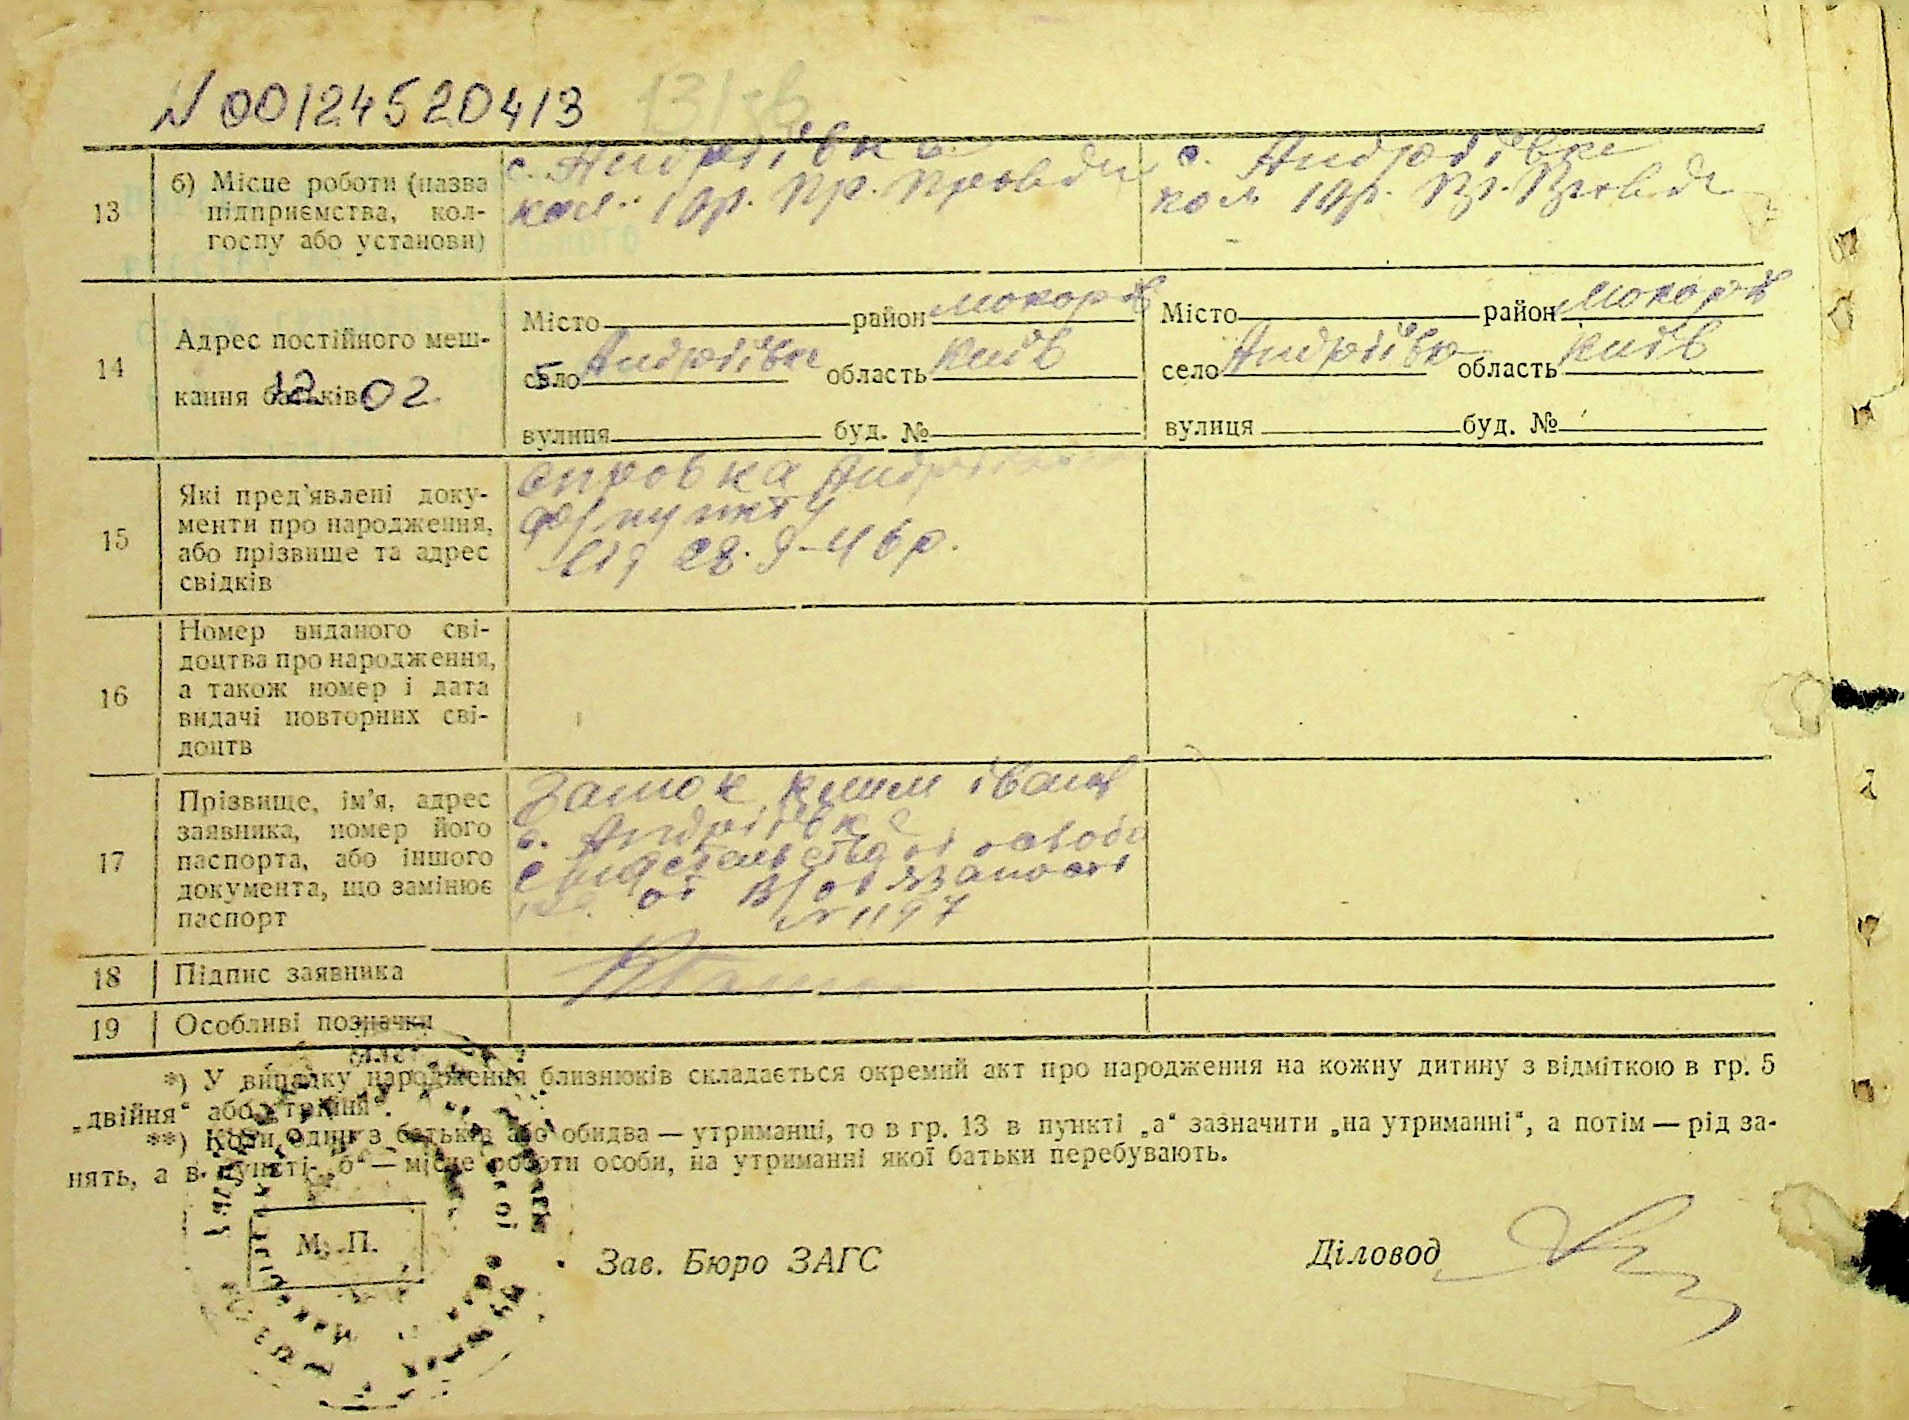 N 00124520413
13
б) Місце роботи (назва
підприємства, кол-
госпу або установи)
с. Андріївка
кол. 10 р. Пр. Правди
с. Андріївка
кол. 10 р. Пр. Правди
14
Адрес постійного меш-
кання батьків
12 02
Місто район Макарів
село Андріївка область Київ
вулиця буд. №
Місто район Макарів
село Андріївка область Київ
вулиця буд. №
15
Які пред'явлені доку-
менти про народження,
або прізвище та адрес
свідків
справка
пункту
від 28. 9-46 р.
16
Номер виданого сві-
доцтва про народження,
а також номер і дата
видачі повторних сві-
доцтв
17
Прізвище, ім'я, адрес
заявника, номер його
паспорта, або іншого
документа, що замінює
паспорт
с. Андріївка
от
N 1197
18
Підпис заявника
19
Особливі позначки
*) У випадку народження близнюків складається окремий акт про народження на кожну дитину з відміткою в гр. 5
„двійня“ або „трійня“.
**) Коли один з батьків або обидва — утриманці, то в гр. 13 в пункті „а“ зазначити „на утриманні“, а потім — рід за-
нять, а в пункті „б“ — місце роботи особи, на утриманні якої батьки перебувають.
М. П.
Зав. Бюро ЗАГС
Діловод